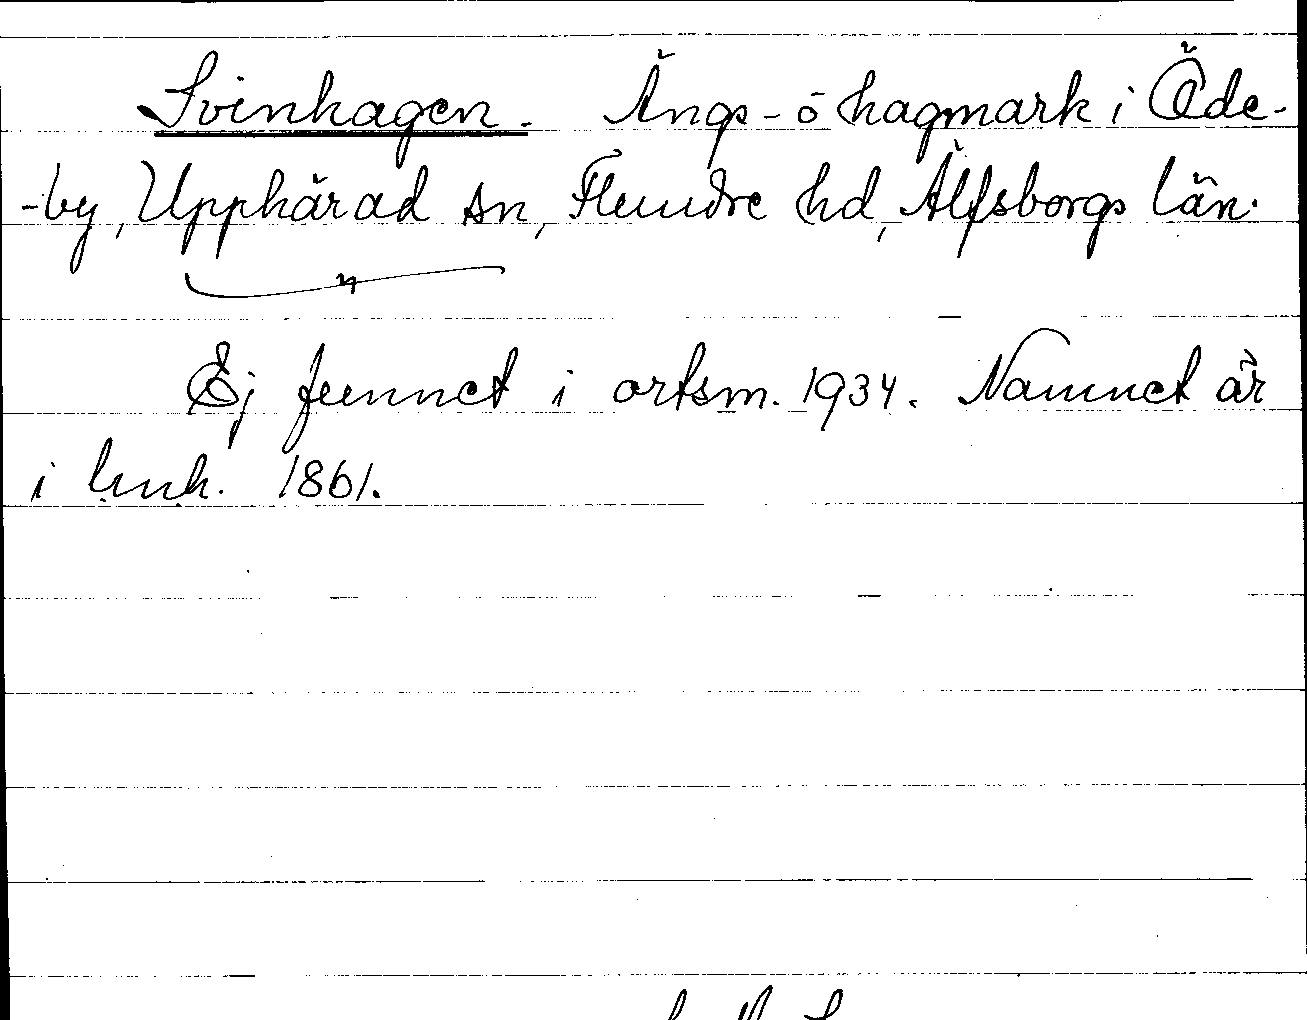 Svinhagen. Ängs- o hagmark i Öde-
-by, Upphärad sn, Flundre hd, Älfsborgs län.
Ej funnet i ortsm. 1934. Namnet är
i 1861.